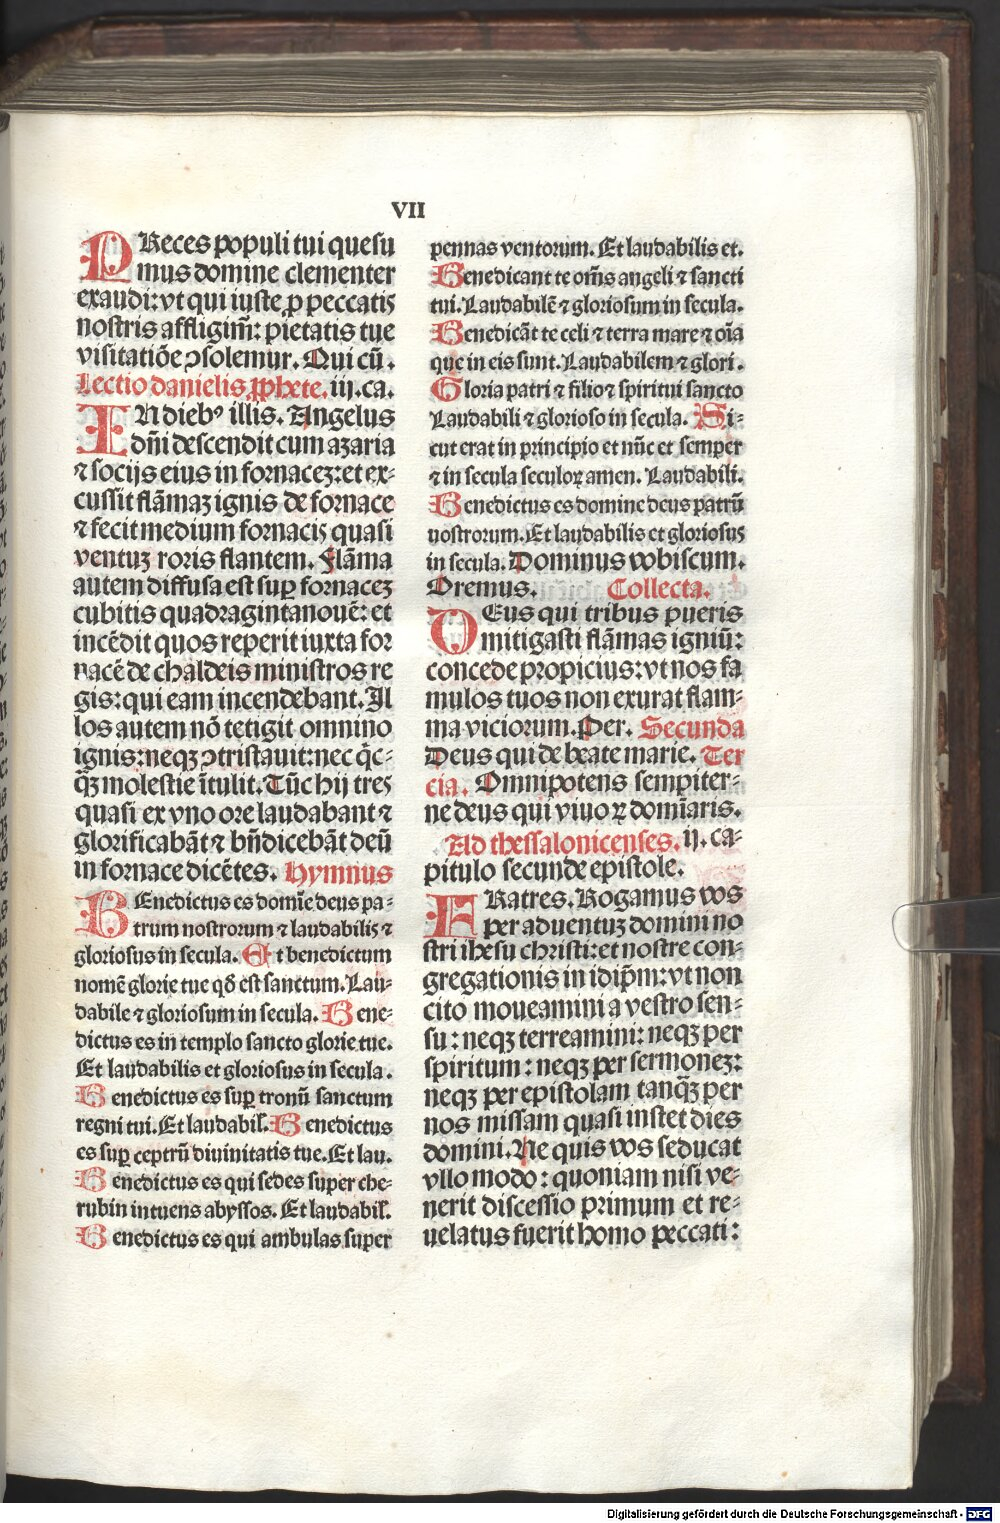 VII
PReces populi tui quesu
mus domine clementer
exaudi: vt qui iuste ꝓ peccatis
nostris affligim̃: pietatis tue
visitatiõe ↄsolemur. Qui cũ.
Lectio danielis ꝓphete. iij. ca.
IN diebꝰ illis. Angelus
dñi descendit cum azaria
⁊ socijs eius in fornacez: et ex⸗
cussit flãmaz ignis de fornace
⁊ fecit medium fornacis quasi
ventuz roris flantem. Flãma
autem diffusa est suꝑ fornacez
cubitis quadragintanouẽ: et
incẽdit quos reperit iuxta for
nacẽ de chaldeis ministros re
gis: qui eam incendebant. Il
los autem nõ tetigit omnino
ignis: neqꝫ ↄtristauit: nec q̃c⸗
qꝫ̃ molestie ĩtulit. Tũc hij tres
quasi ex vno ore laudabant ⁊
glorificabãt ⁊ bñdicebãt deũ
in fornace dicẽtes. Hymnus
BEnedictus es domĩe deus pa⸗
trum nostrorum ⁊ laudabilis ⁊
gloriosus in secula. Et benedictum
nomẽ glorie tue qð est sanctum. Lau⸗
dabile ⁊ gloriosum in secula. Bene⸗
dictus es in templo sancto glorie tue.
Et laudabilis et gloriosus in secula.
Benedictus es suꝑ tronũ sanctum
regni tui. Et laudabil̃. Benedictus
es suꝑ ceptrũ diuinitatis tue. Et lau.
Benedictus es qui sedes super che⸗
rubin intuens abyssos. Et laudabil̃.
Benedictus es qui ambulas super
pennas ventorum. Et laudabilis et.
Benedicant te om̃s angeli ⁊ sancti
tui. Laudabilẽ ⁊ gloriosum in secula.
Benedicãt te celi ⁊ terra mare ⁊ oĩa
que in eis sunt. Laudabilem ⁊ glori.
Gloria patri ⁊ filio ⁊ spiritui sancto
Laudabili ⁊ glorioso in secula. Si⸗
cut erat in principio et nũc et semper
⁊ in secula seculoꝝ amen. Laudabili.
Benedictus es domine deus patrũ
nostrorum. Et laudabilis et gloriosus
in secula. Dominus vobiscum.
Oremus. Collecta.
DEus qui tribus pueris
mitigasti flãmas igniũ:
concede propicius: vt nos fa
mulos tuos non exurat flam⸗
ma viciorum. Per. Secunda
Deus qui de beate marie. Ter
cia. Omnipotens sempiter⸗
ne deus qui viuoꝝ domĩaris.
Ad thessalonicenses. ij. ca⸗
pitulo secunde epistole.
FRatres. Rogamus vos
per aduentuz domini no
stri ihesu christi: et nostre con⸗
gregationis in idip̃m: vt non
cito moueamini a vestro sen⸗
su: neqꝫ terreamini: neqꝫ per
spiritum: neqꝫ per sermonez:
neqꝫ per epistolam tanqꝫ̃ per
nos missam quasi instet dies
domini. Ne quis vos seducat
vllo modo: quoniam nisi ve⸗
nerit discessio primum et re⸗
uelatus fuerit homo peccati:
Digitalisierung gefördert durch die Deutsche Forschungsgemeinschaft - DFG